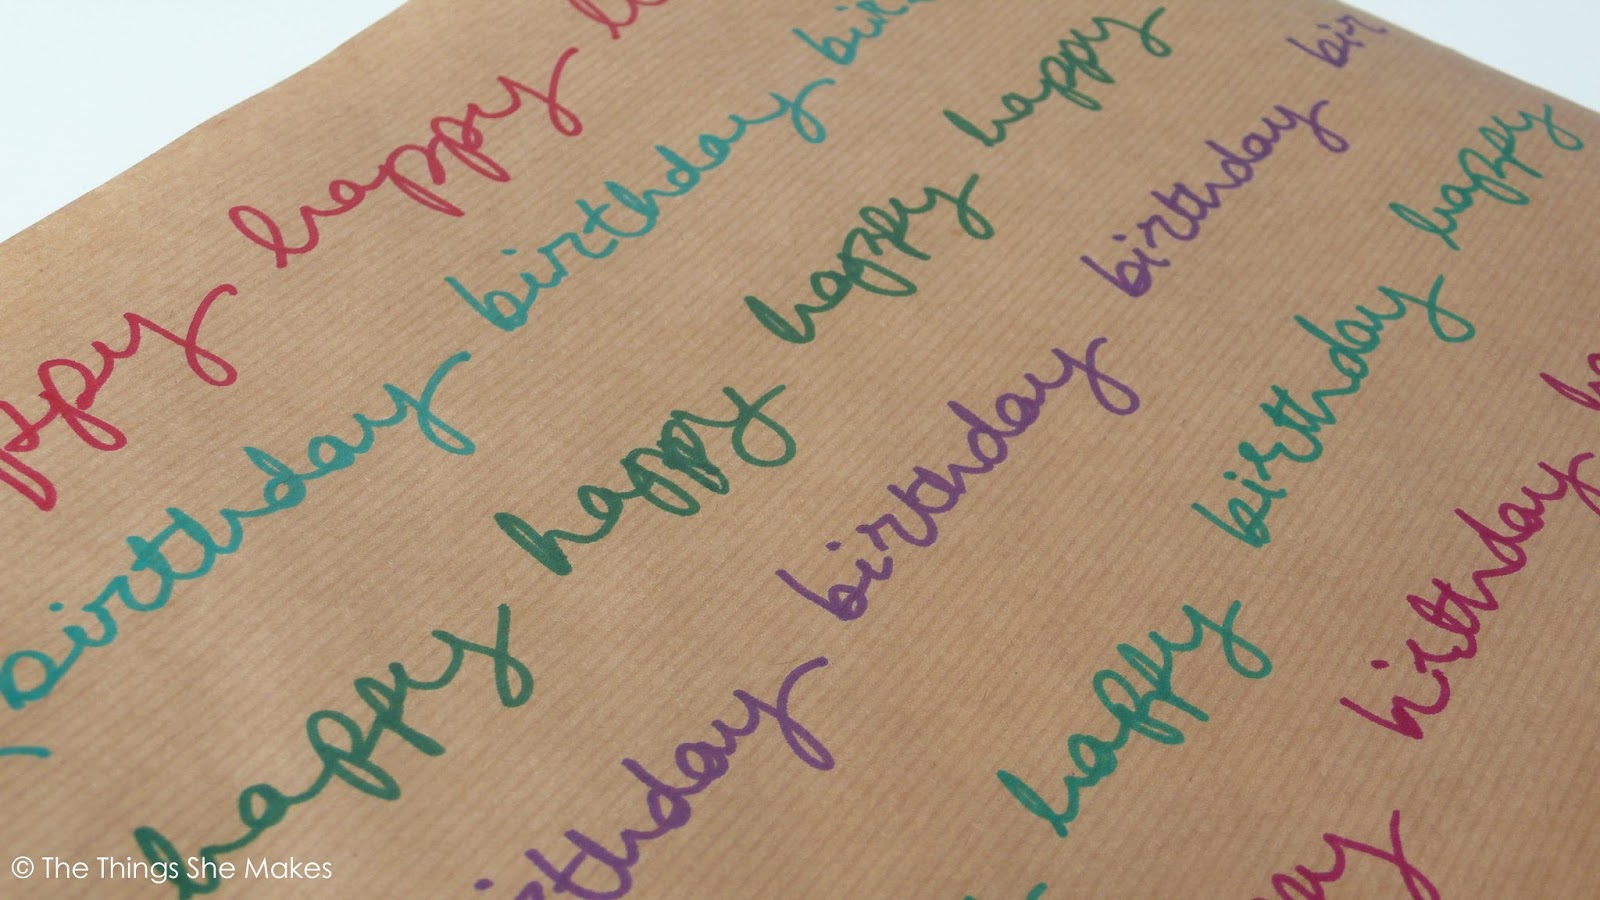 ppy happy h
birthday birthday bir
happy happy happy happy
irthday birthday birthday bir
happy birthday happy
ay birthday ha
© The Things She Makes